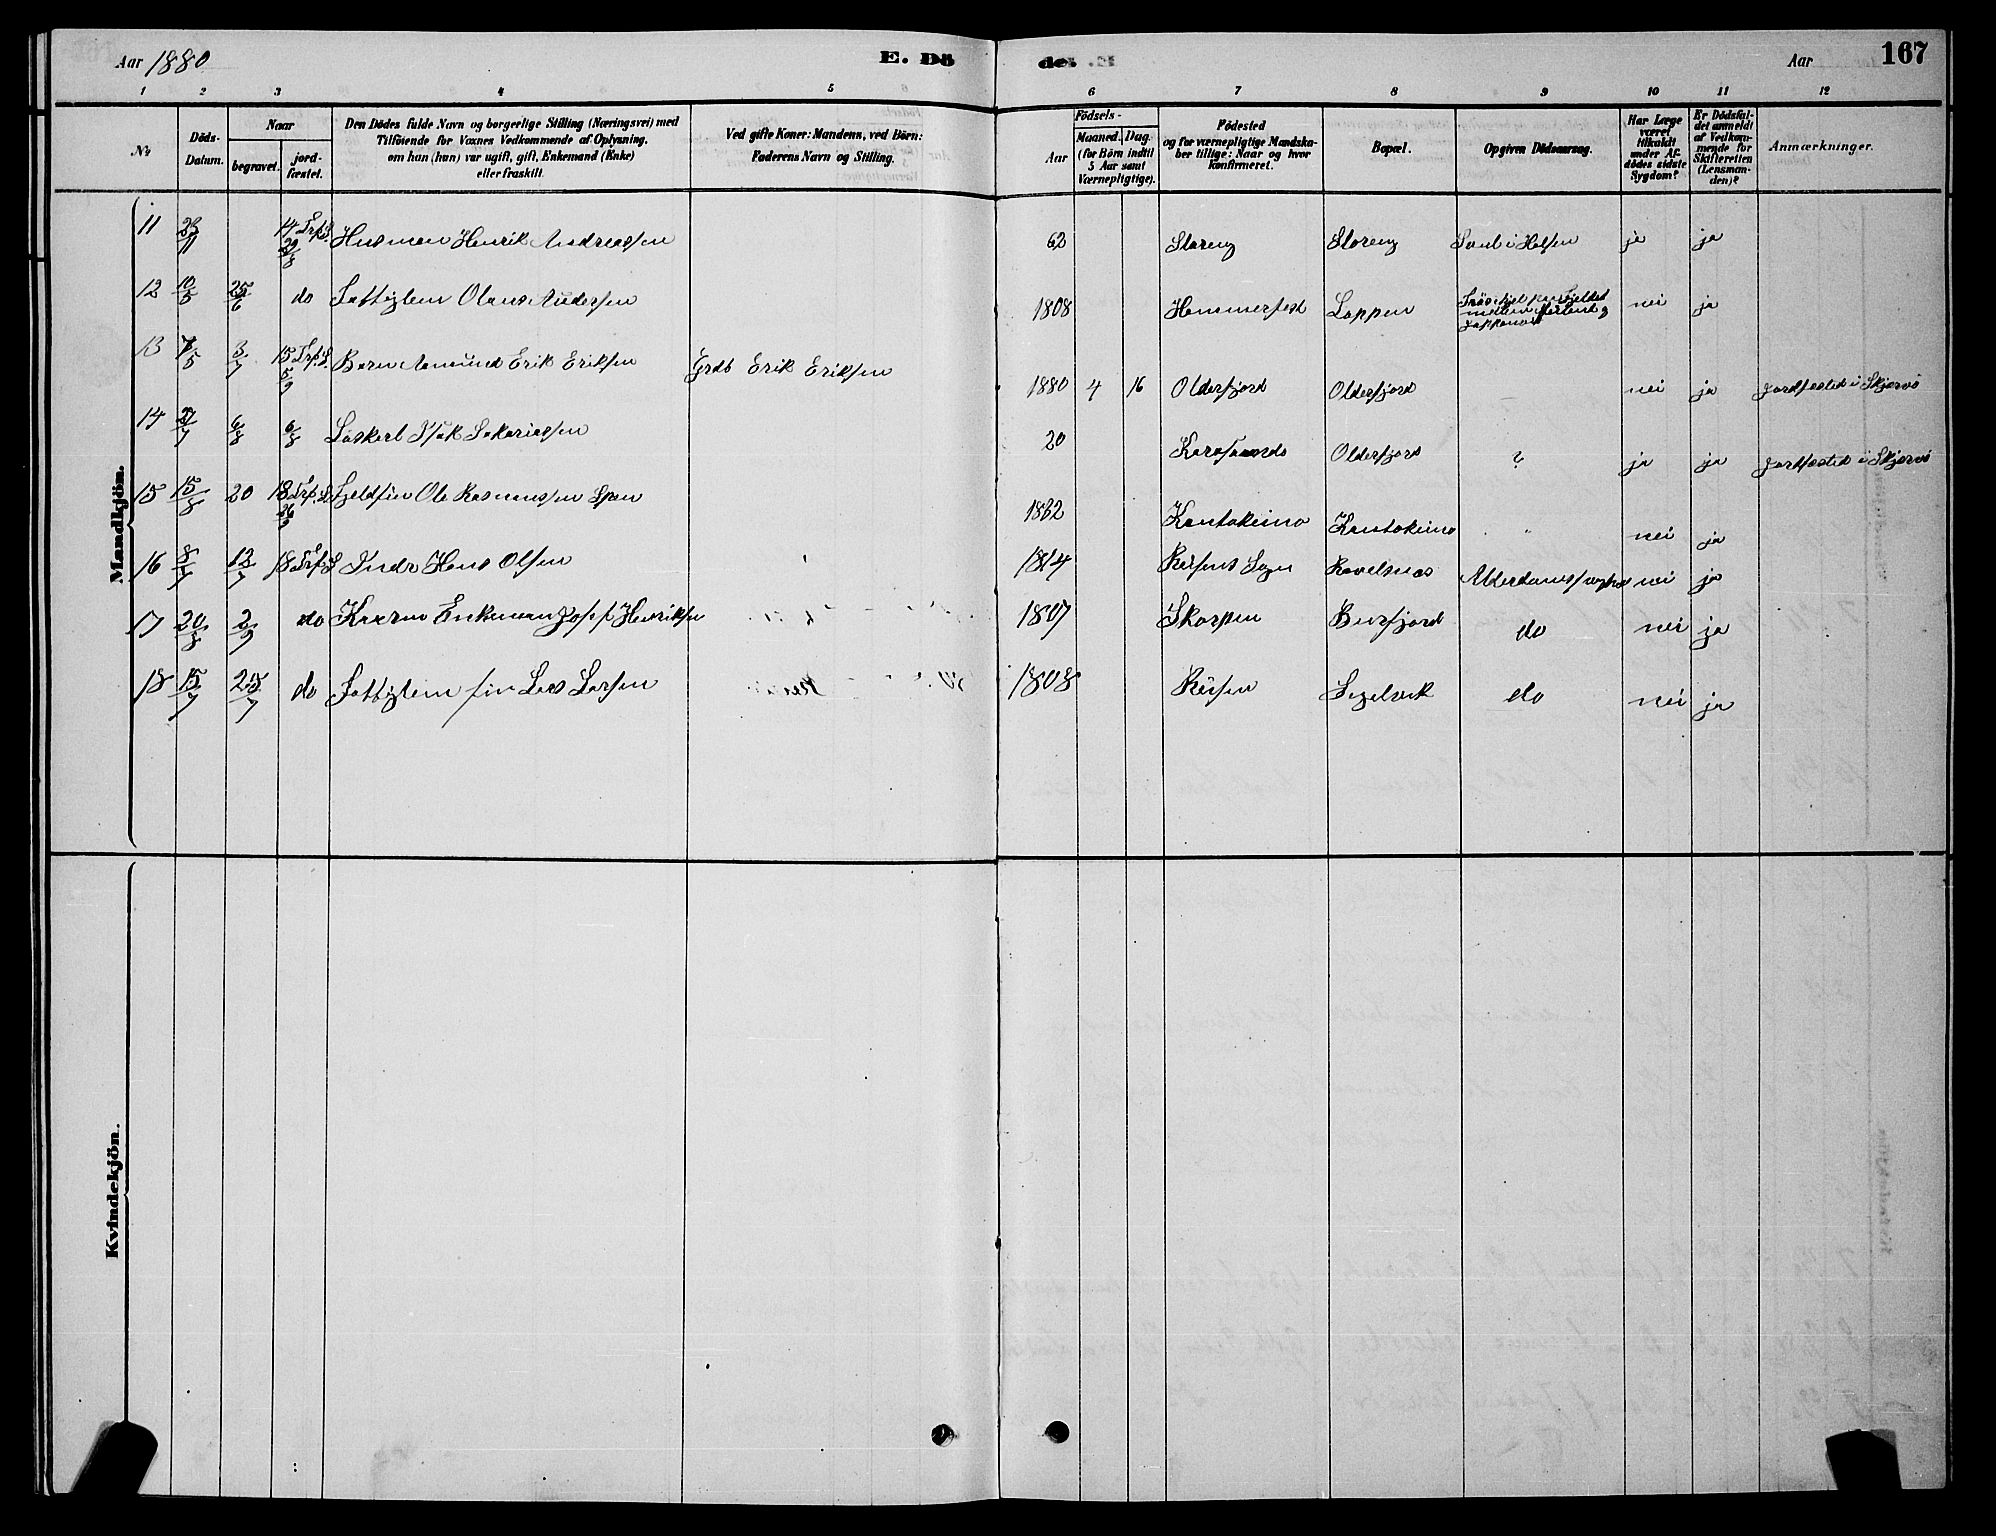 Aar 1880
E. Dö
de. E.
Aar
167
1 2 3 4 5 6 7 8 9 10 11 12
Nr
Döds-
Datum.
Naar
begravet.
jord-
fæstet.
Den Dödes fulde Navn og borgerlige Stilling (Næringsvei) med
Tilföiende for Voxnes Vedkommende af Oplysning,
om han (hun) var ugift, gift, Enkemand (Enke)
eller fraskilt.
Ved gifte Koner: Mandens, ved Börn:
Faderens Navn og Stilling.
Födsels-
Aar
Maaned.
Dag.
(for Börn indtil
5 Aar samt
Værnepligtige).
Födested
og for værnepligtige Mandska-
ber tillige: Naar og hvor
konfirmeret.
Bopæl.
Opgiven Dödsaarsag.
Har Læge
været
tilkaldt
under Af-
dödes sidste
Sygdom?
Er Dödsfal-
det anmeldt
af Vedkom-
mende for
Skifteretten
(Lensman-
den)?
Anmærkninger.
Mandkjön.
11 14 Trp.S. 29/8 Husman Henrik Andreassen 62 Storeng Storeng ja ja
12 10/5 25/6 do Fattiglem Olaus Andersen 1808 Hammerfest Loppen nei ja
13 7/5 3/7 15 Trp.S. 5/9 Barn Aamund Erik Eriksen Grdb Erik Eriksen 1880 4 16 Olderfjord Olderfjord nei ja Jordfæsted i Skjervö
14 27/7 6/8 6/8 Isak Sakariassen 20 Olderfjord ? ja ja Jordfæsted i Skjervö
15 15/8 20 18 Trp.S. 26/9 Fjeldfin Ole Rasmussen 1862 Kautokeino Kautokeino nei ja
16 8/7 12/7 18 Trp.S Indr Hans Olsen 1814 Reisens Sogn Ravelsnes nei ja
17 20/8 2/9 do Enkeman Josef Henriksen 1807 Skorpen Bursfjord do nei ja
18 15/7 25/7 do Fattiglem fin Lars Larsen 1808 Reisen Segelvik do nei ja
Kvindekjön.